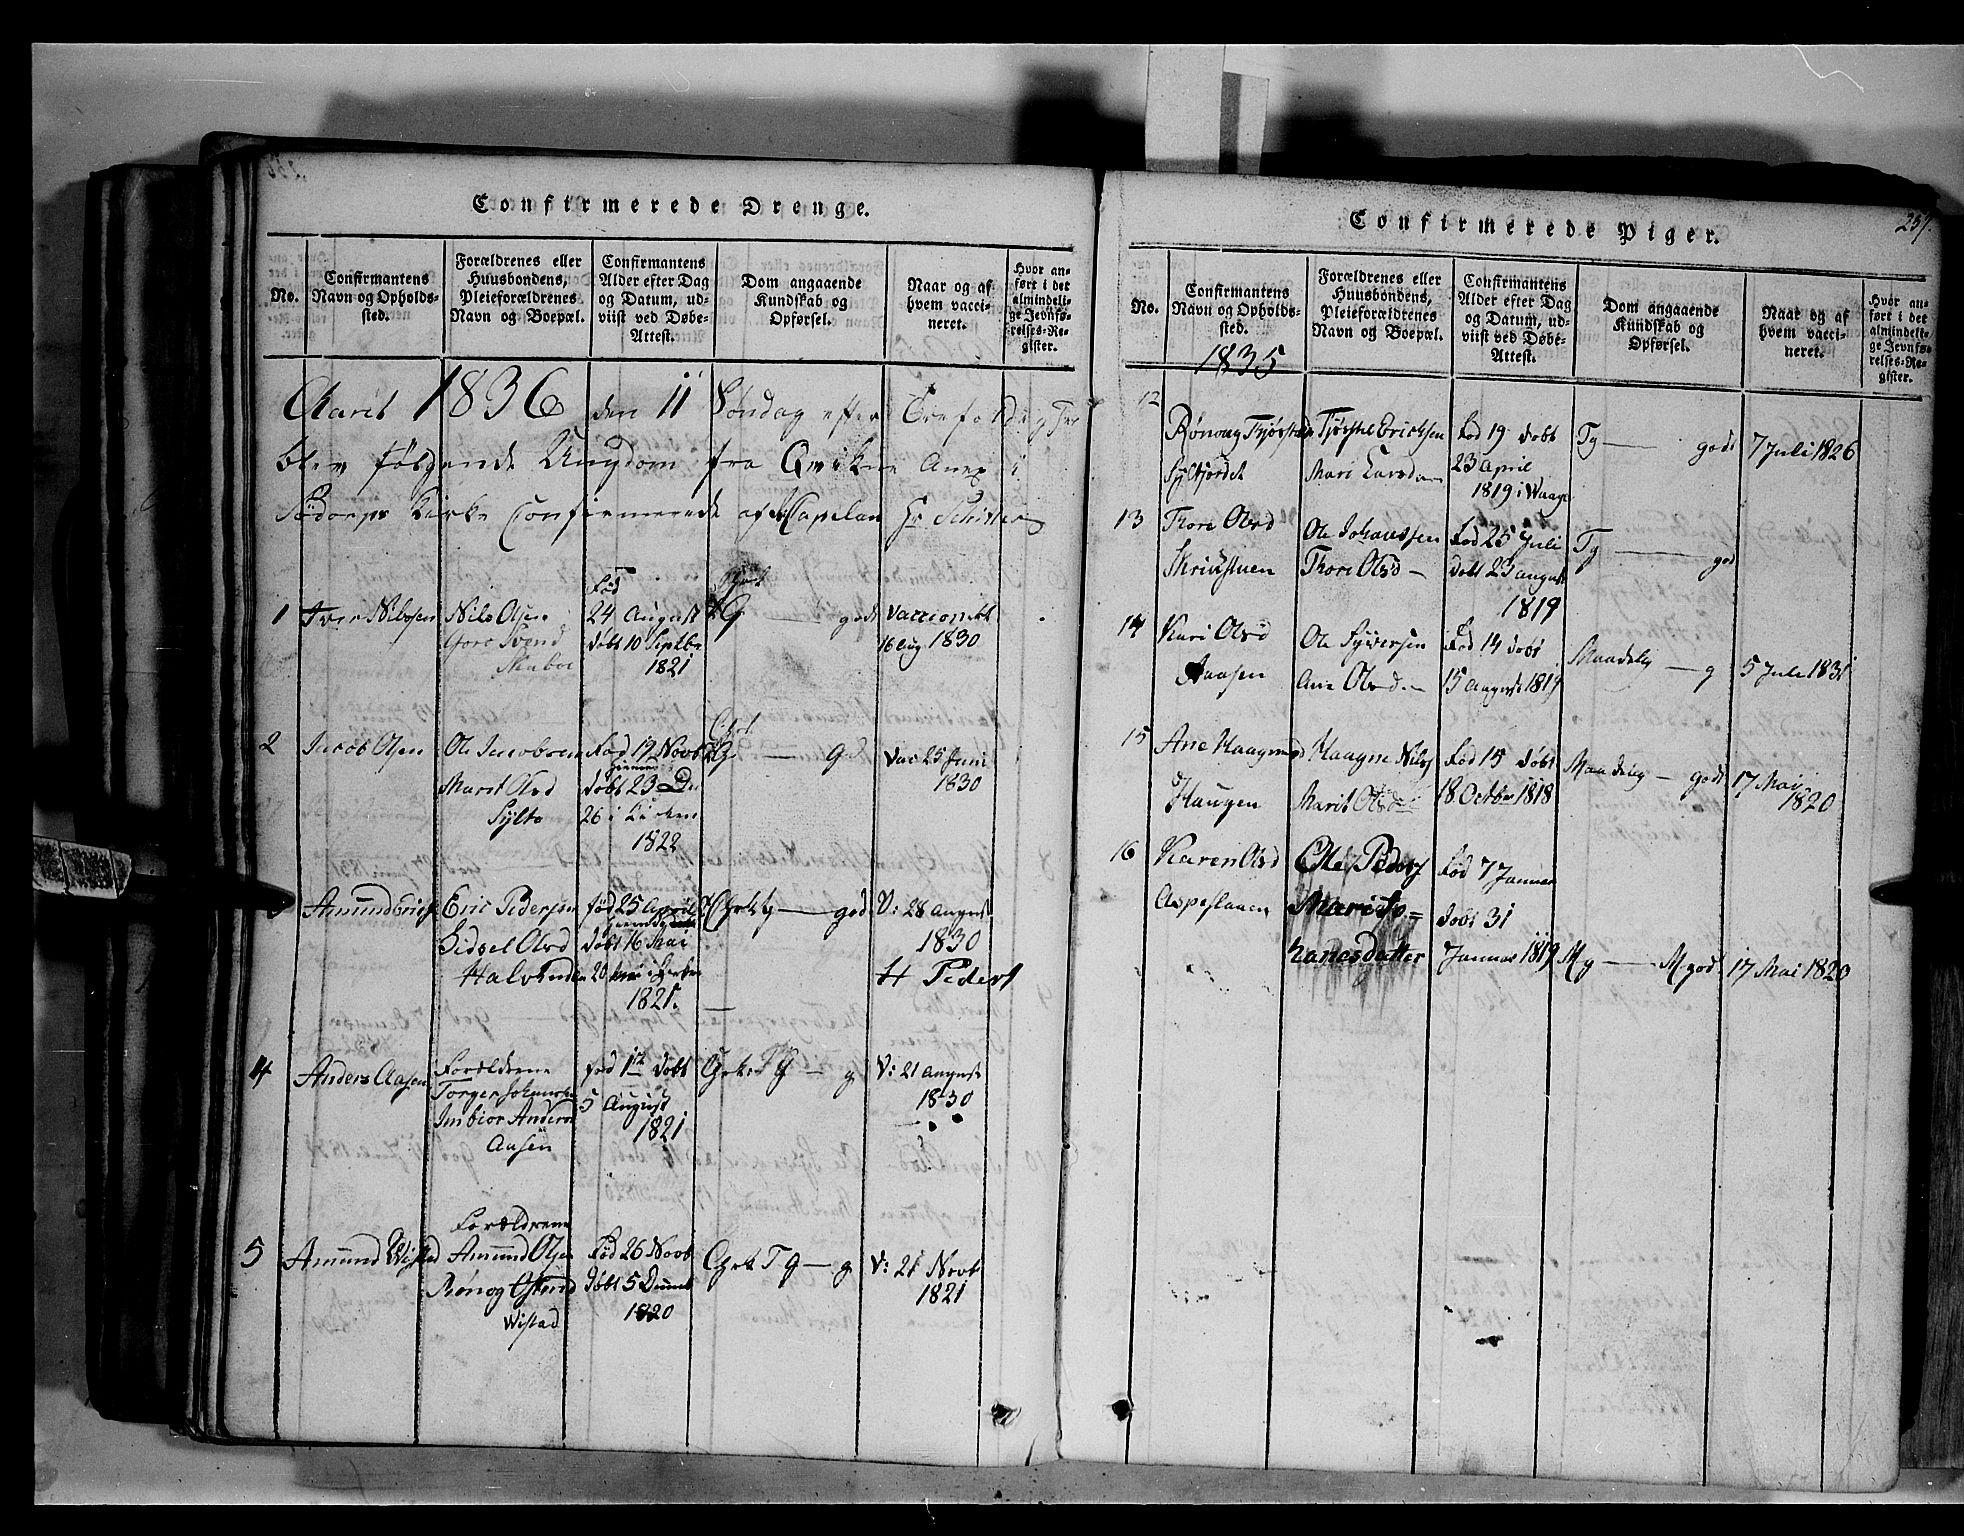 Confirmerede Drenge.
No.
Confirmantens
Navn og Opholds-
sted.
Forældrenes eller
Huusbondens,
Pleieforældrenes
Navn og Boepæl.
Confirmantens
Alder efter Dag
og Datum, ud-
viist ved Døbe-
Attest.
Dom angaaende
Kundskab og
Opførsel.
Naar og af
hvem vacci-
neret.
Hvor an-
ført i det
almindeli-
ge Jevnfø-
relses-Re-
gister.
Aaret 1836 den 11 Søndag efter
blev følgende Ungdom fra Qvikne Anex i
Sødorps Kirke Confirmerede af Capelan Hr
1
Iver Nilssen
Nils Olsen
Goro Svend
Fød
24 August
døbt 10 Septbr
1821
god
16 Aug 1830
2
Jacob Olsen
Ole Jacobsen
Marit Olsd
Sylte
Fød 19 Novb
hiemme
døbt 23
26 i Kirken
1822
g
Vac 25 Juni
1830
Amund Erichs
Eric Pedersen
Sidsel Olsd
fød 25 April
døbt 16 Mai
20
1821.
god
V: 28 August
1830
H Peders
4
Anders Aasen
Forældrene
Torger Johanns
Imbior Anders
Aasen
fød 1te døbt
5 August
1821
g
V: 21 August
1830
5
Amund Wistad
Forældrene
Amund Olsen
Rønog Ostensd
Wistad
Fød 26 Novb
døbt 5 Decemb
1820
T g — g
V: 21 Novb
1821
Confirmerede Piger.
257.
No.
Confirmantens
Navn og Opholds-
sted.
Forældrenes eller
Huusbondens,
Pleieforældrenes
Navn og Boepæl.
Confirmantens
Alder efter Dag
og Datum, ud-
viist ved Døbe-
Attest.
Dom angaaende
Kundskab og
Opførsel.
Naar og af
hvem vacci-
neret.
Hvor an-
ført i det
almindeli-
ge Jevnfø-
relses-Re-
gister.
1835
12
Rønoug Tjøstels
Tjøstel Ericksen
Mari Larsd
Fød 19 døbt
23 April
1819 i Waage
Tg — godt
7 Juli 1826
13
Thore Olsd
Skridstuen
Ole Johanssen
Thore Olsd —
Fød 25 Juli
døbt 23 august
1819
Tg — god
14
Kari Olsd
Aaasen
Ole Syversen
Ane Olsd —
Fød 14 døbt
15 August 1819
Maadelig — g
5 Juli 1831
15
Ane Haagensd
Haugen
Haagne Nils
Marit Olsd
Fød 15 døbt
18 Octber 1818
Maadelig — godt
17 Mai
1820
16
Karen Olsd
Aspeslaaen
Ole Peders
Mari Jo=
hanesdatter
Fød 7 Januar
døbt 31
Januar 1819
Mg — M god
17 Mai 1820